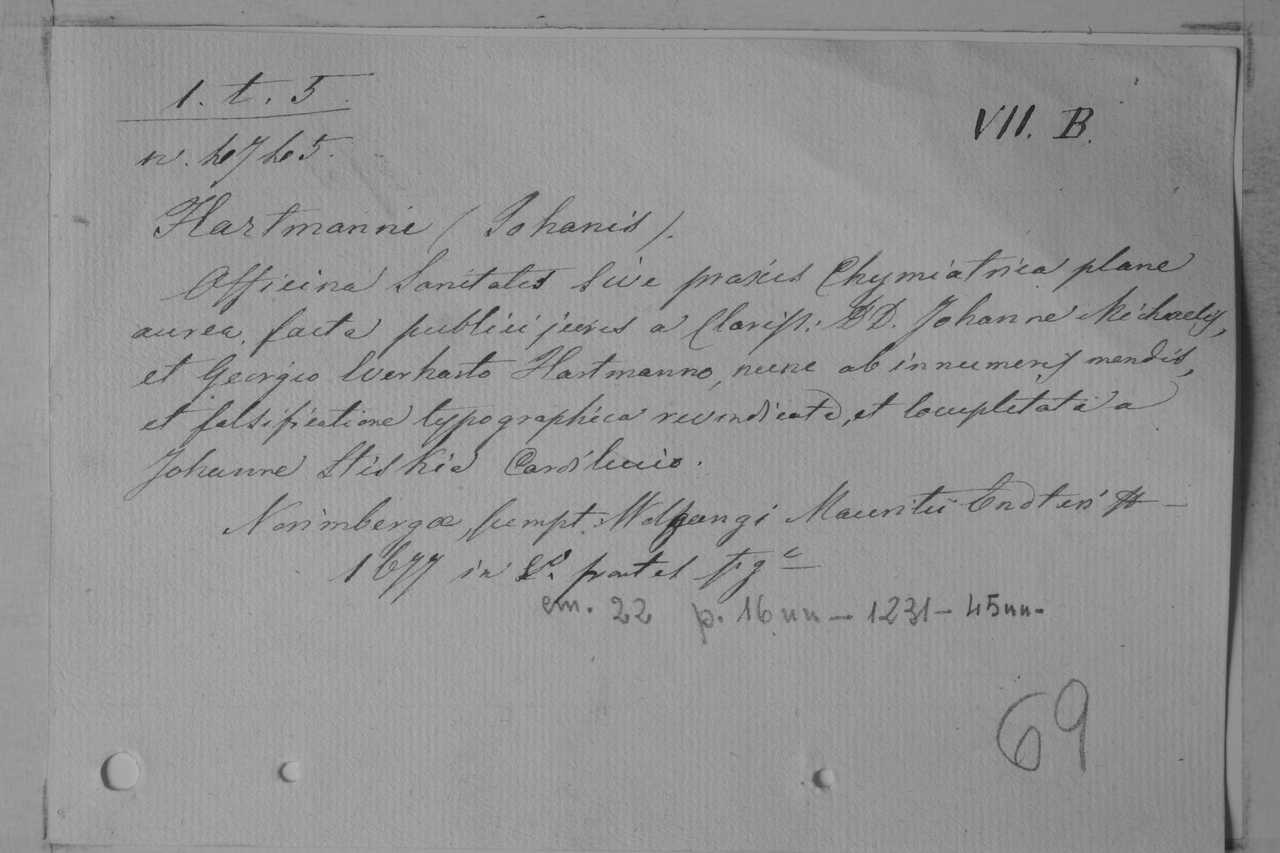 1. t. 5.
VII. B.
n. 4745.
Hartmanni (Johanis).
Officina Sanitatis Sive praxis Chymiatrica plane
aurea, facta publici juris a Clariss: DD. Johanne Michaely,
et Georgio Everharto Hartmanno, nunc ab innumeris mendis,
et falsificatione typographica revindicata, et locupletata a
Johanne Stiskia Cardilucio.
Norimbergæ, sumpt: Wolfgangi Mauritii Endteri
1677 in part et
cm. 22 p. 16 nn - 1231 - 45 nn.
69